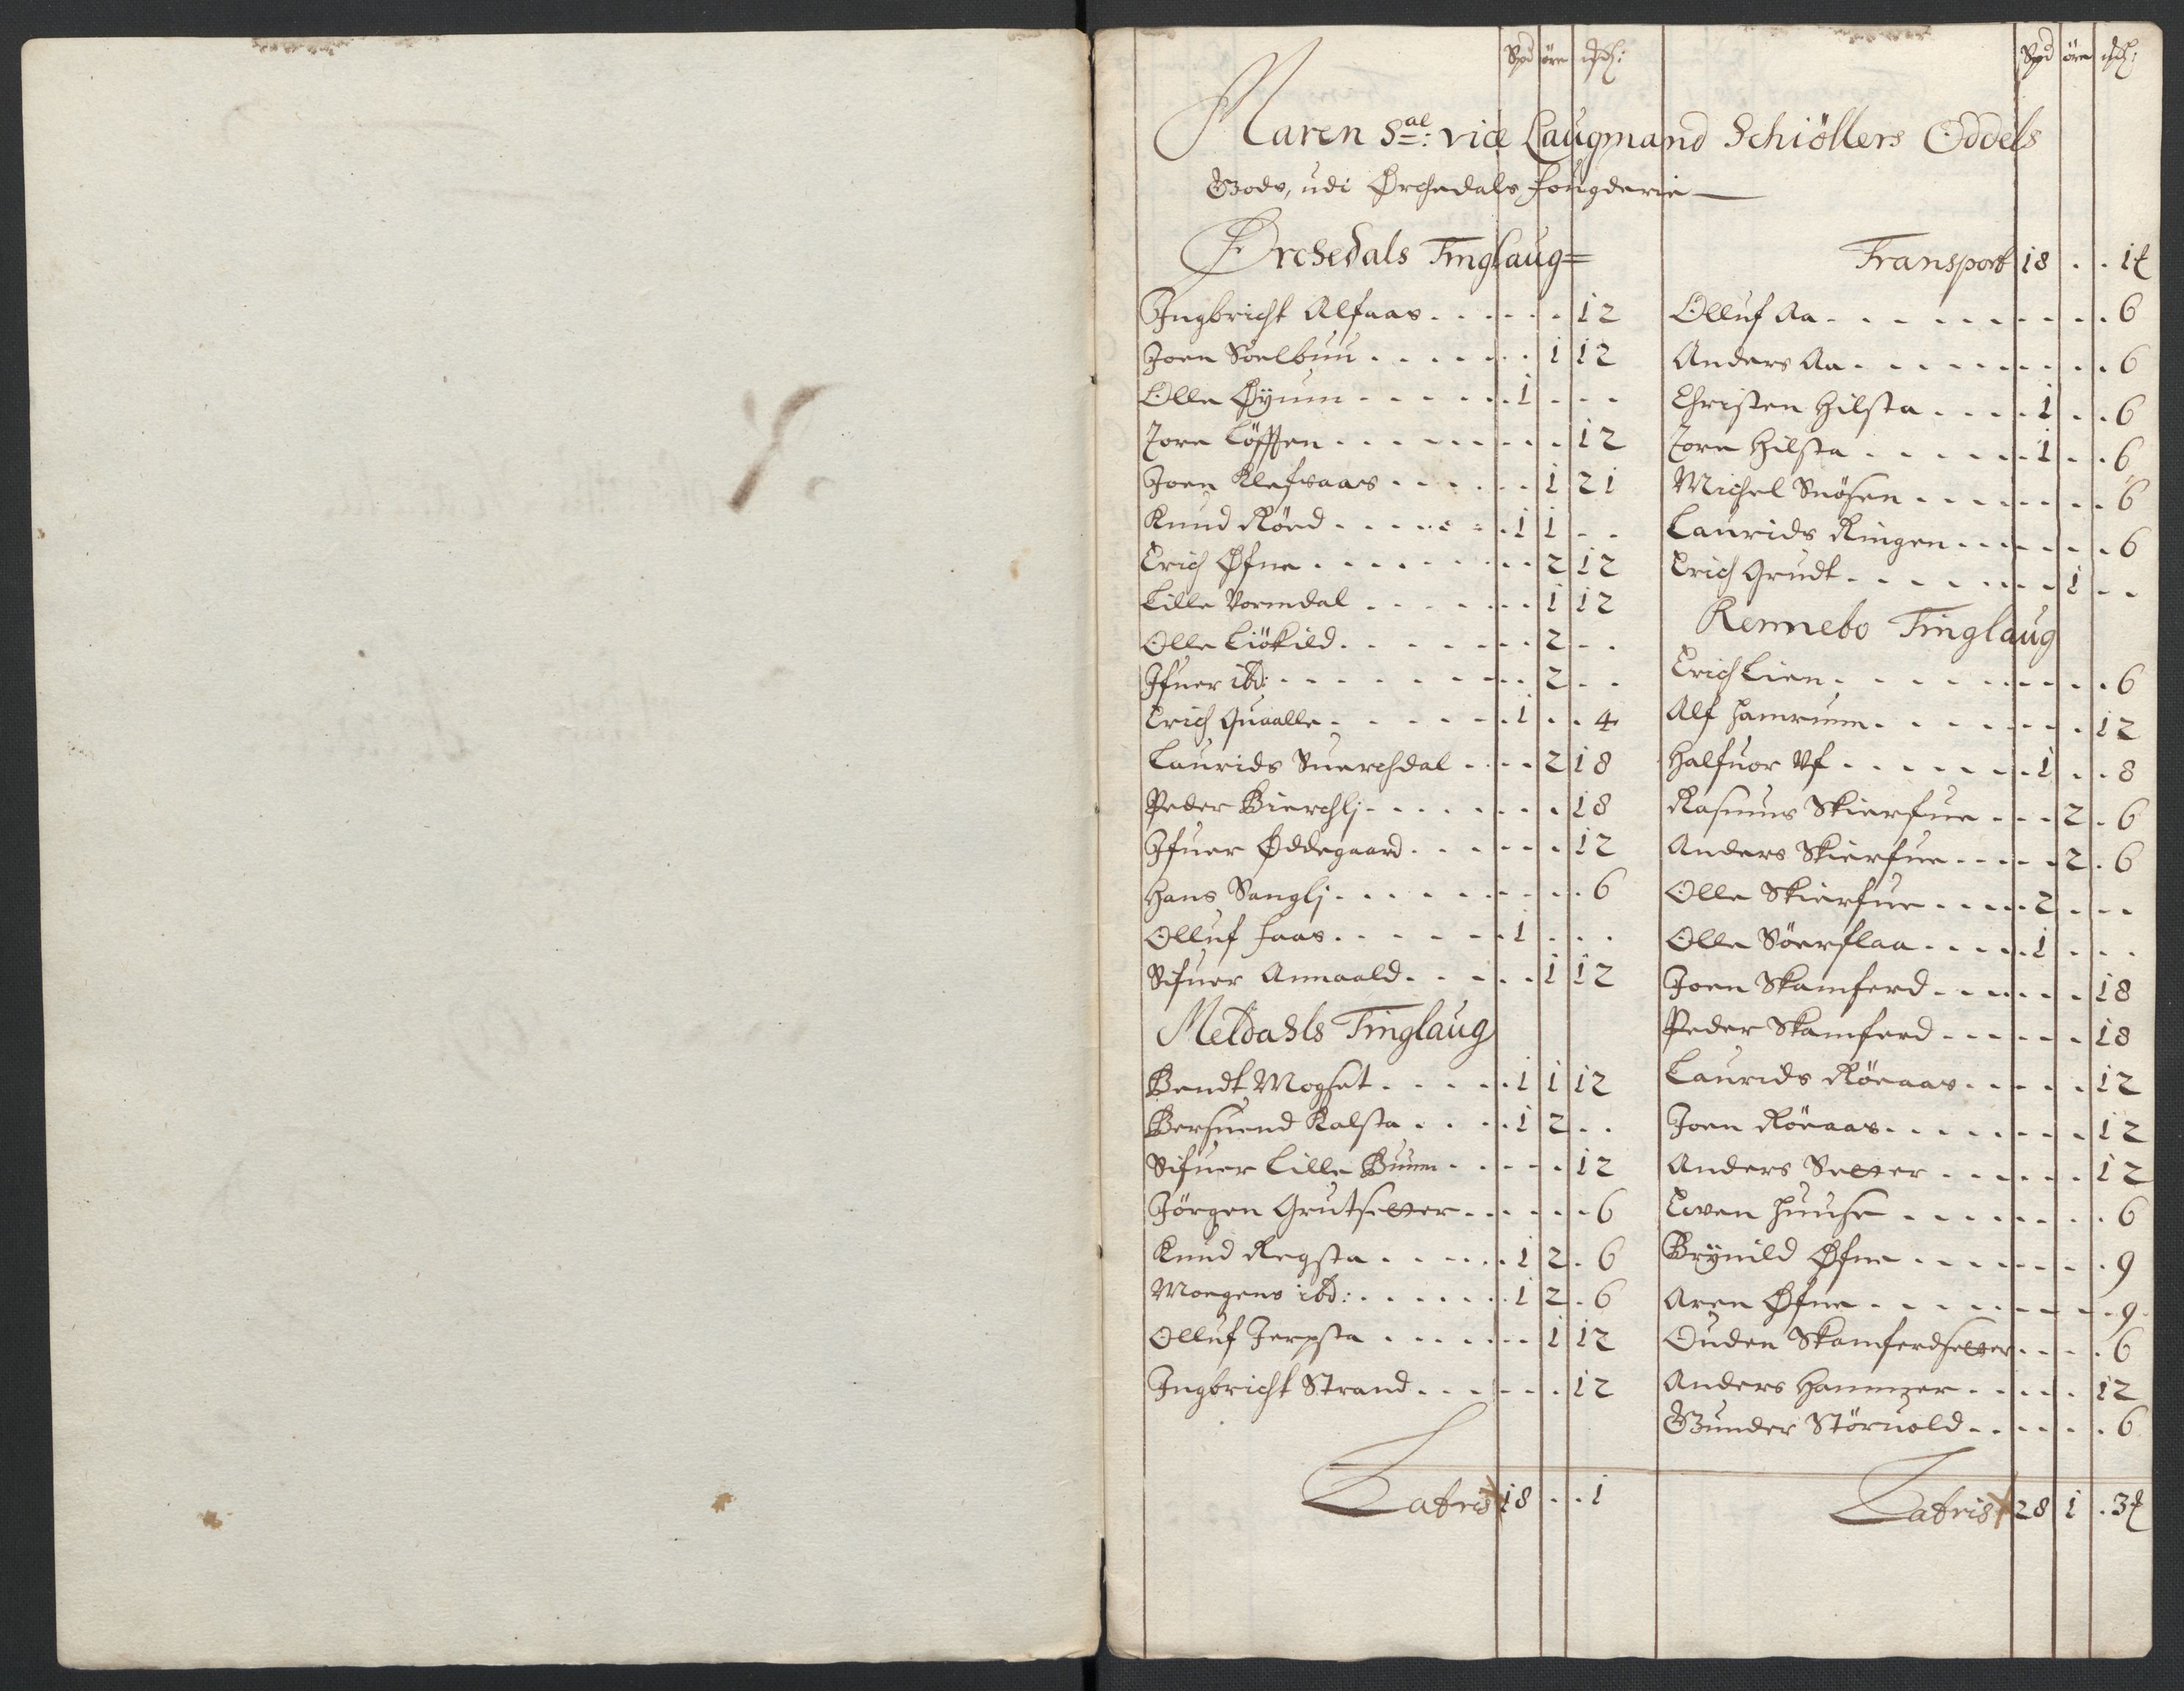 Spd öre
Maren Sal: vice Laugmand Schiöllers Oddels
Gods, udi Ørchedals fougderie
Ørchedals Tinglaug
Ingbricht Alfaas . . . . . . 12
Joen Soelbuu . . . . . . 1 12
Olle Øyum . . . . . . 1 . . .
Tore Löffsen . . . . . . 12
Joen Klefsaas . . . . . . 1 21
Knud Röed . . . . . . 1 1 . .
Erich Øfne . . . . . . 2 12
Lille Vormdal . . . . . . 1 12
Olle Liökild . . . . . . 2 . .
Ifuer ibd: . . . . . . 2 . .
Erich Quaalle . . . . . . 1 . . 4
Laurids Suerchdal . . . . 2 18
Peder Bierchlj . . . . . . 18
Ifuer Øddegaard . . . . . . 12
Hans Sanglj . . . . . . 6
Olluf faas . . . . . . 1 . . .
Sifuer Annaald . . . . . 1 12
Meldahls Tinglaug
Bendt Mogset . . . . . 1 1 12
Bersuend Kalsta . . . . 1 2 . .
Sifuer Lille Buum . . . . . 12
Jörgen Grutsetter . . . . . . 6
Knud Regsta . . . . . 1 2 . 6
Moegens ibd: . . . . . . 1 2 . 6
Olluf Jerpsta . . . . . . 1 12
Ingbricht Strand . . . . . . 12
Latris 18 . . 1
Spd öre
Transport 18 . . 1
Olluf Aa . . . . . . 6
Anders Aa . . . . . . 6
Christen Hilsta . . . . 1 . . 6
Tore Hilsta . . . . . . 1 . . 6
Michel Snösen . . . . . . 6
Laurids Ringen . . . . . . 6
Erich Grudt . . . . . . 1 . .
Rennebo Tinglaug
Erich Lien . . . . . . 6
Alf Hamrum . . . . . . 12
Halfuor Uf . . . . . . 1 . . 8
Rasmus Skierfue . . . 2 . 6
Anders Skierfue . . . . . 2 . 6
Olle Skierfue . . . . . 2 . . .
Olle Söerflaa . . . . . 1 . . .
Joen Skamferd . . . . . . 18
Peder Skamferd . . . . . . 18
Laurids Röeaas . . . . . 12
Joen Röeaas . . . . . . 12
Anders Setter . . . . . . 12
Ewen Huuse . . . . . . 6
Brynild Øfne . . . . . . 9
Aren Øfne . . . . . . 9
Ouden Skamferdsetter . . . . 6
Anders Hammer . . . . . 12
Gunder Störuold . . . . . . 6
Latris 28 1 . 3